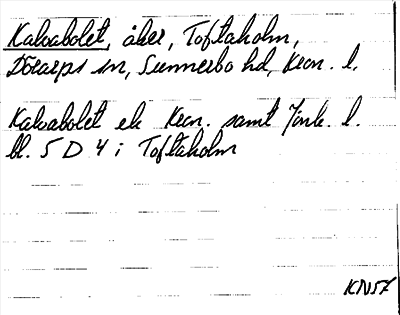 Kalvabolet, åker, Toftaholm,
Dörarps sn, Sunnerbo hd, Kron. l.
Kalvabolet ek Kron. samt Jönk. l.
bl. 5 D 4 i Toftaholm
KN57